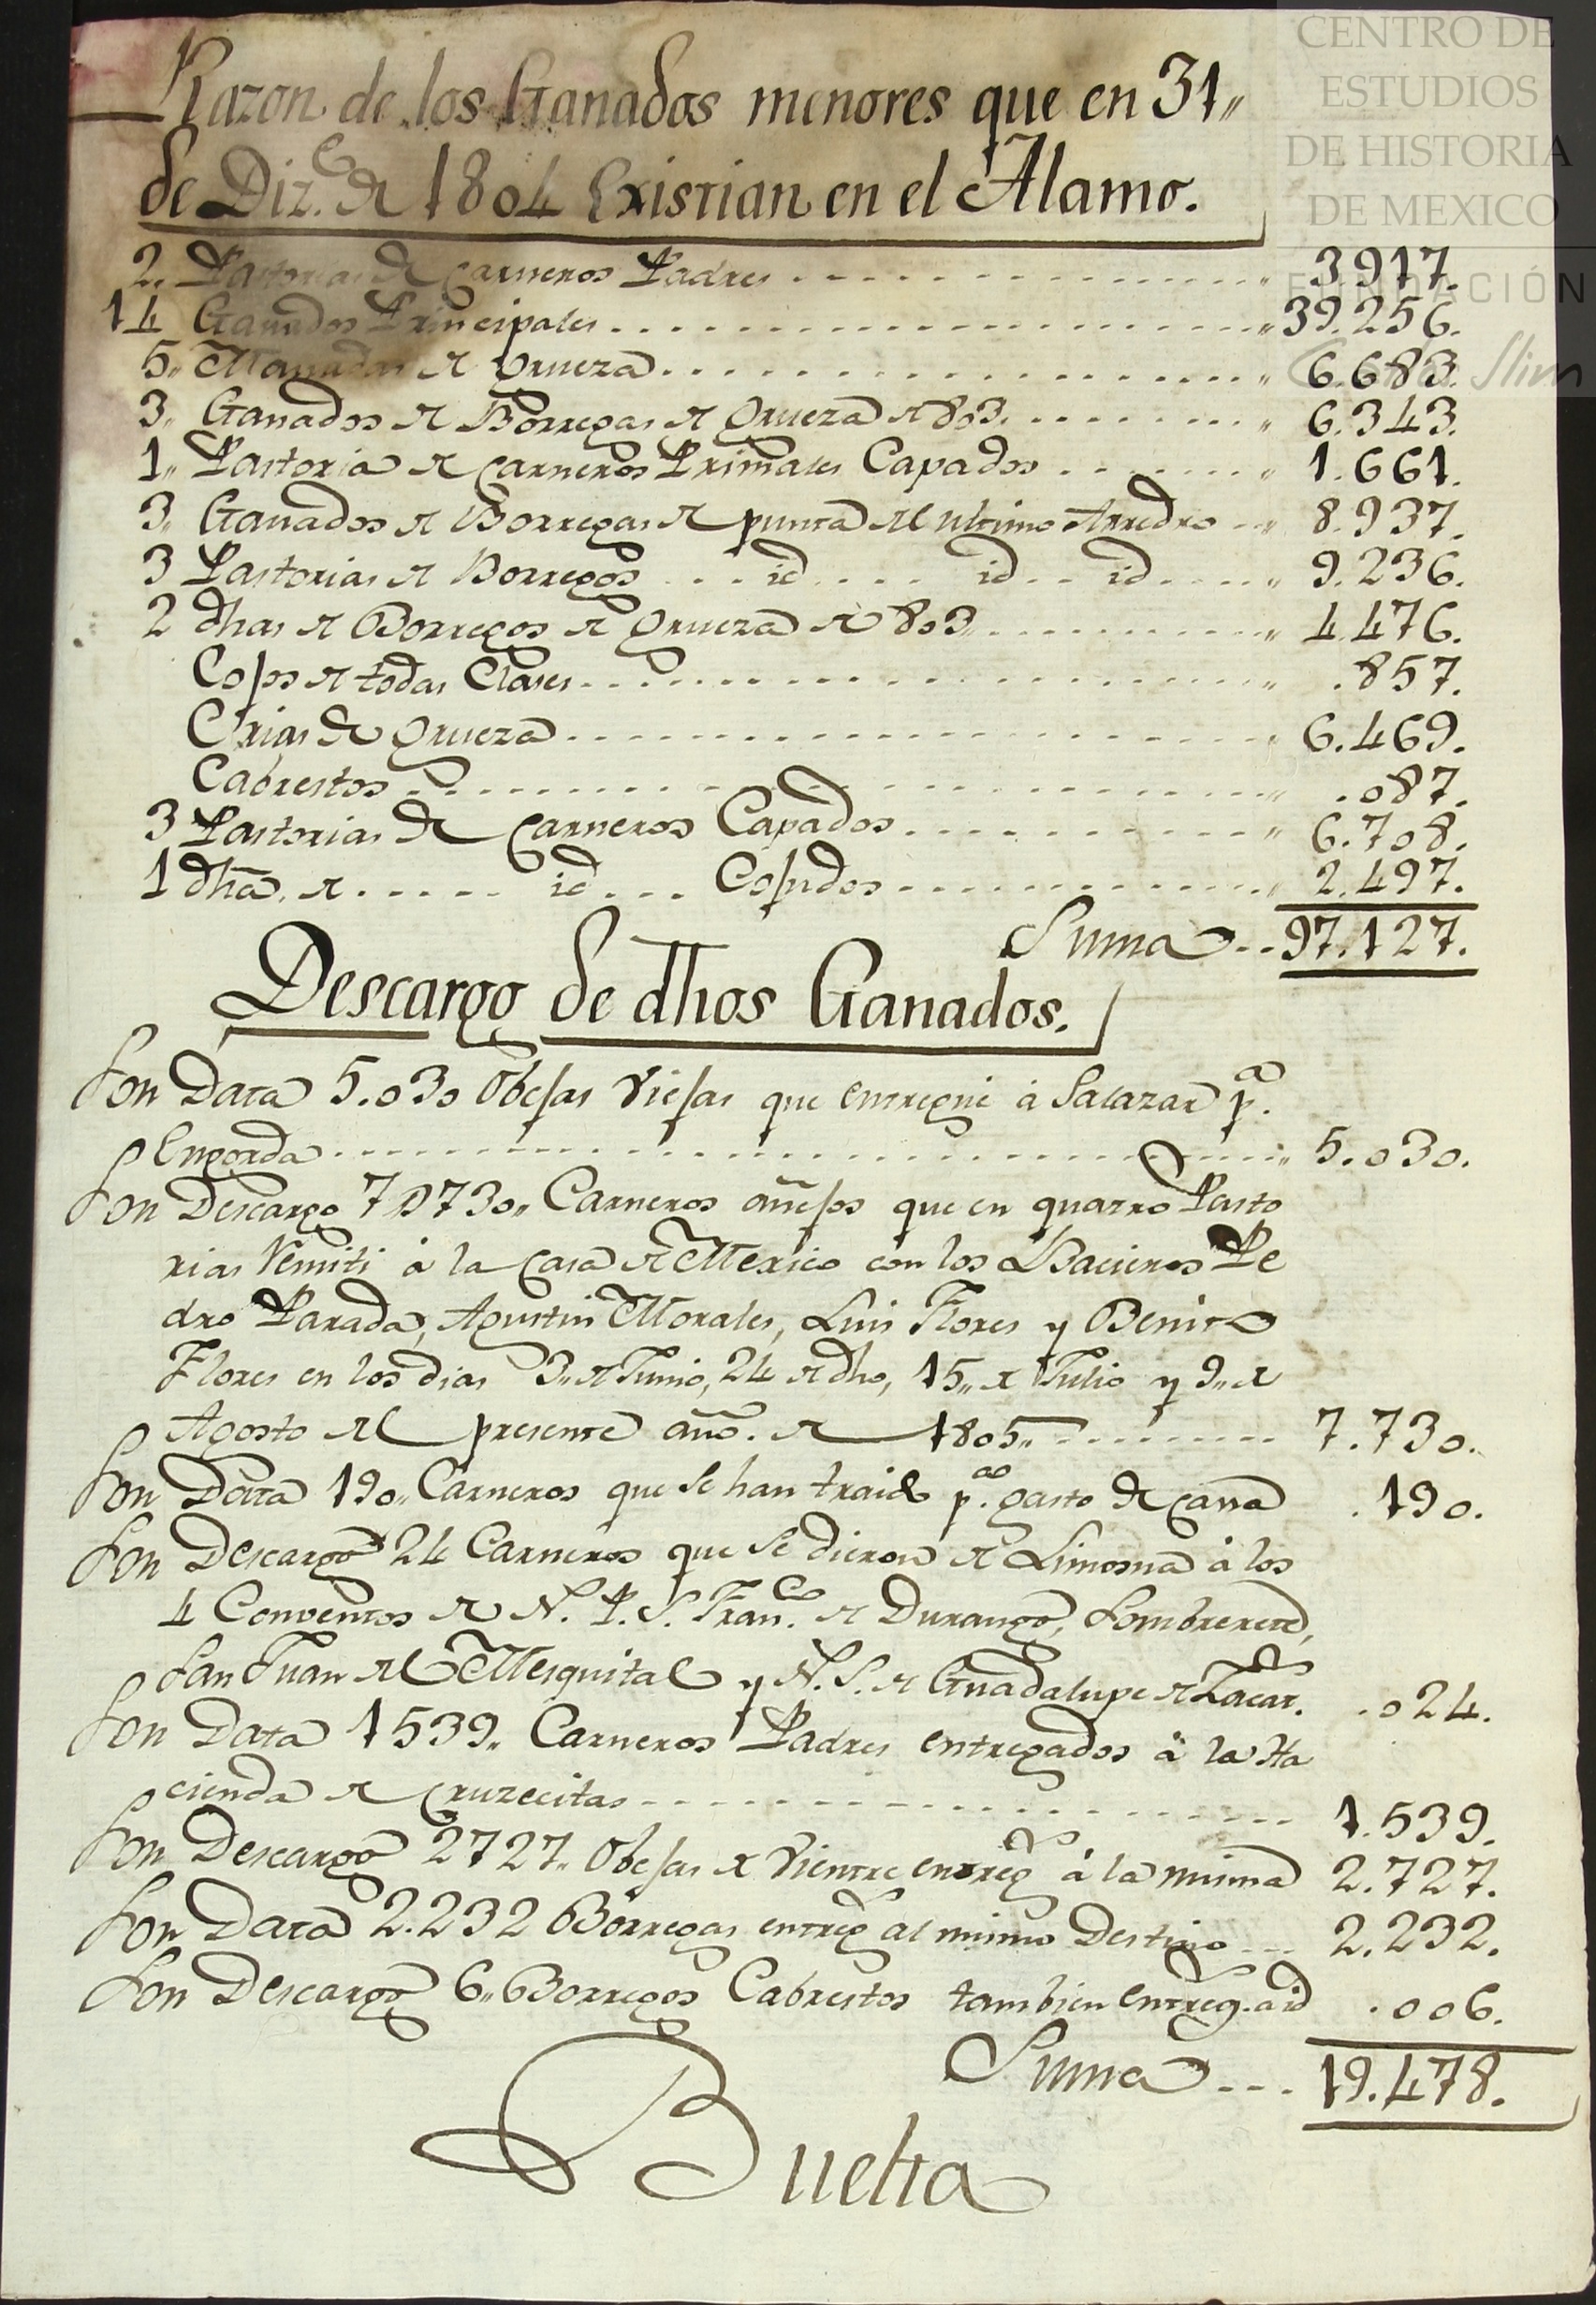 CENTRO DE
ESTUDIOS
DE HISTORIA
DE MEXICO
FUNDACIÓN
Slim
Razon de los Ganados menores que en 31„
de Diz.e de 1804 Existian en el Alamo.
2. Pastorias de Carneros Padres „ 3917.
14 Ganados Principales „ 39.256.
5„ Manadas de Grueza „ 6.683.
3„ Ganados de Borregas de Grueza de 803. „ 6.343.
1„ Pastoria de Carneros Primales Capados „ 1.661.
3„ Ganados de Borregas de punta del ultimo Arredro „ 8.937.
3 Pastorias de Borregos id id id „ 9.236.
2 dhas de Borregos de Grueza de 803 „ 4.476.
Cojos de todas Clases „ .857.
Crias de Grueza „ 6.469.
Cabrestos „ .087.
3 Pastorias de Carneros Capados „ 6.708.
1 dha. de id Cojudos „ 2.497.
Suma 97.127.
Descargo de dhos Ganados.
Son Data 5.030 Obejas Viejas que entregué á Salazar p.a
Engorda „ 5.030.
Son Descargo 7730„ Carneros añejos que en quatro Pasto
rias Remiti á la Casa de Mexico con los Bacieros Pe
dro Parada, Agustin Morales, Luis Flores y Benito
Flores en los dias 3„ de Junio, 24 de dho, 15„ de Julio y 9„ de
Agosto del presente año. de 1805„ 7.730.
Son Data 190„ Carneros que se han traido p.a gasto de Casa .190.
Son Descargo 24 Carneros que se dieron de Limosna á los
4 Conventos de N. P. S. Fran.co de Durango, Sombrerete,
San Juan del Mesquital y N. S. de Guadalupe de Zacat.s .024.
Son Data 1539„ Carneros Padres entregados á la Ha
cienda de Cruzecitas 1.539.
Son Descargo 2727„ Obejas de Vientre entreg.s á la misma 2.727.
Son Data 2.232 Borregas entreg.s al mismo Destino 2.232.
Son Descargo 6„ Borregos Cabrestos tambien entreg.s a id .006.
Suma 19.478.
Buelta